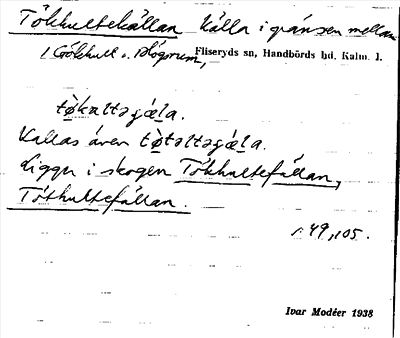 Tökhultekällan Källa i gränsen mellan
/ Gökhult o. Plogorum, Fliseryds sn, Handbörds hd. Kalm. l.
tø̀kaltəɟǽla.
Kallas även tø̀təltəɟǽla.
Ligger i skogen Tökhultefällan,
Töthultefällan.
149,105.
Ivar Modéer 1938